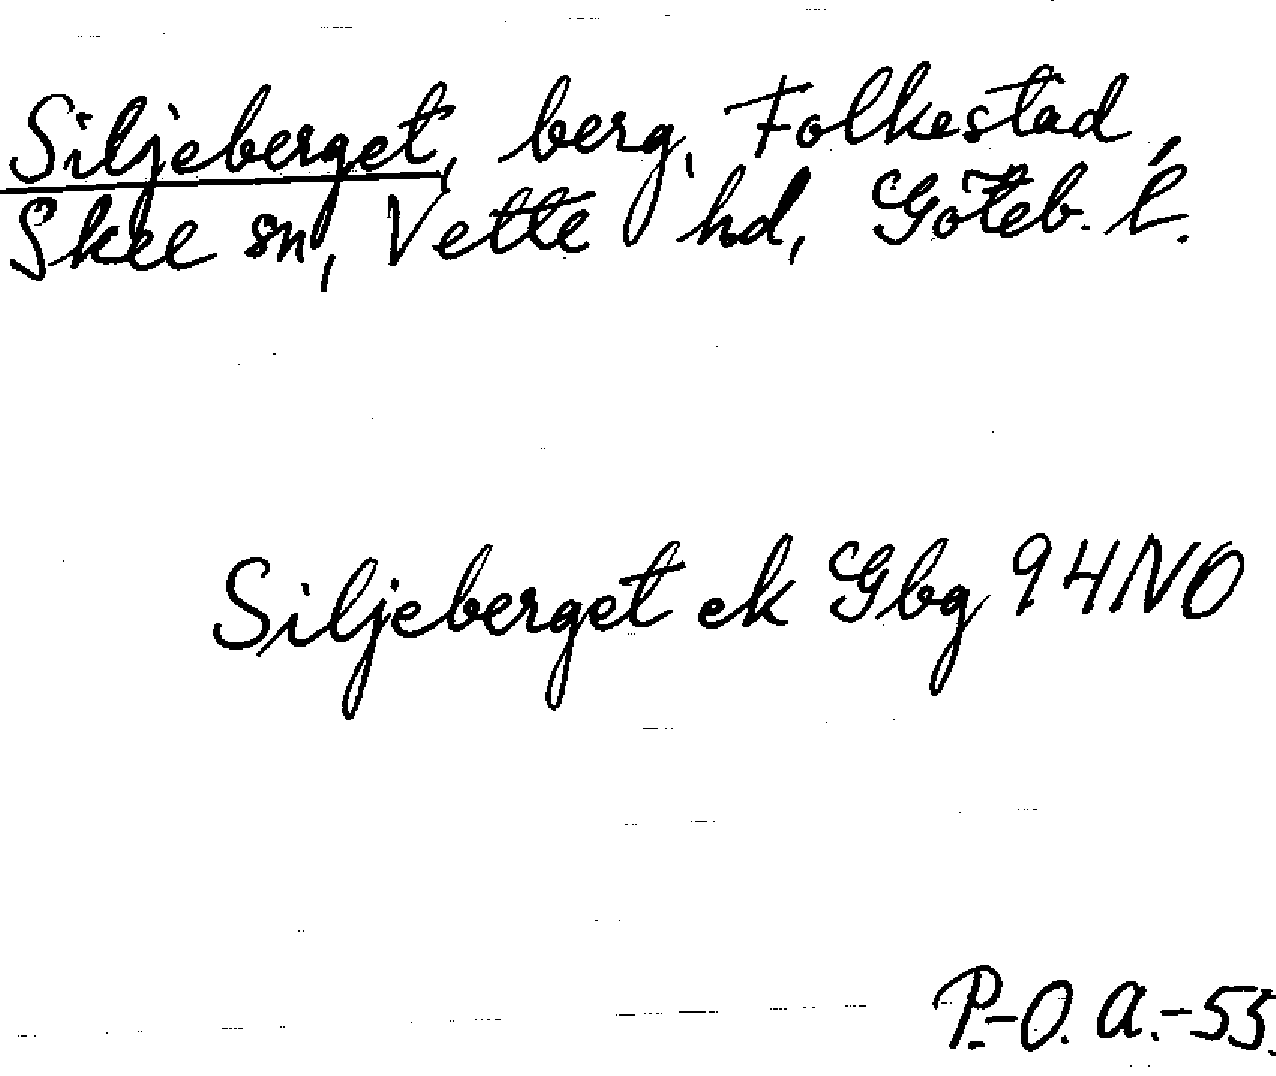 Siljeberget, berg, Folkestad,
Skee sn, Vette hd, Göteb. l.
Siljeberget ek Gbg 94NO
P.-O. A.-55.